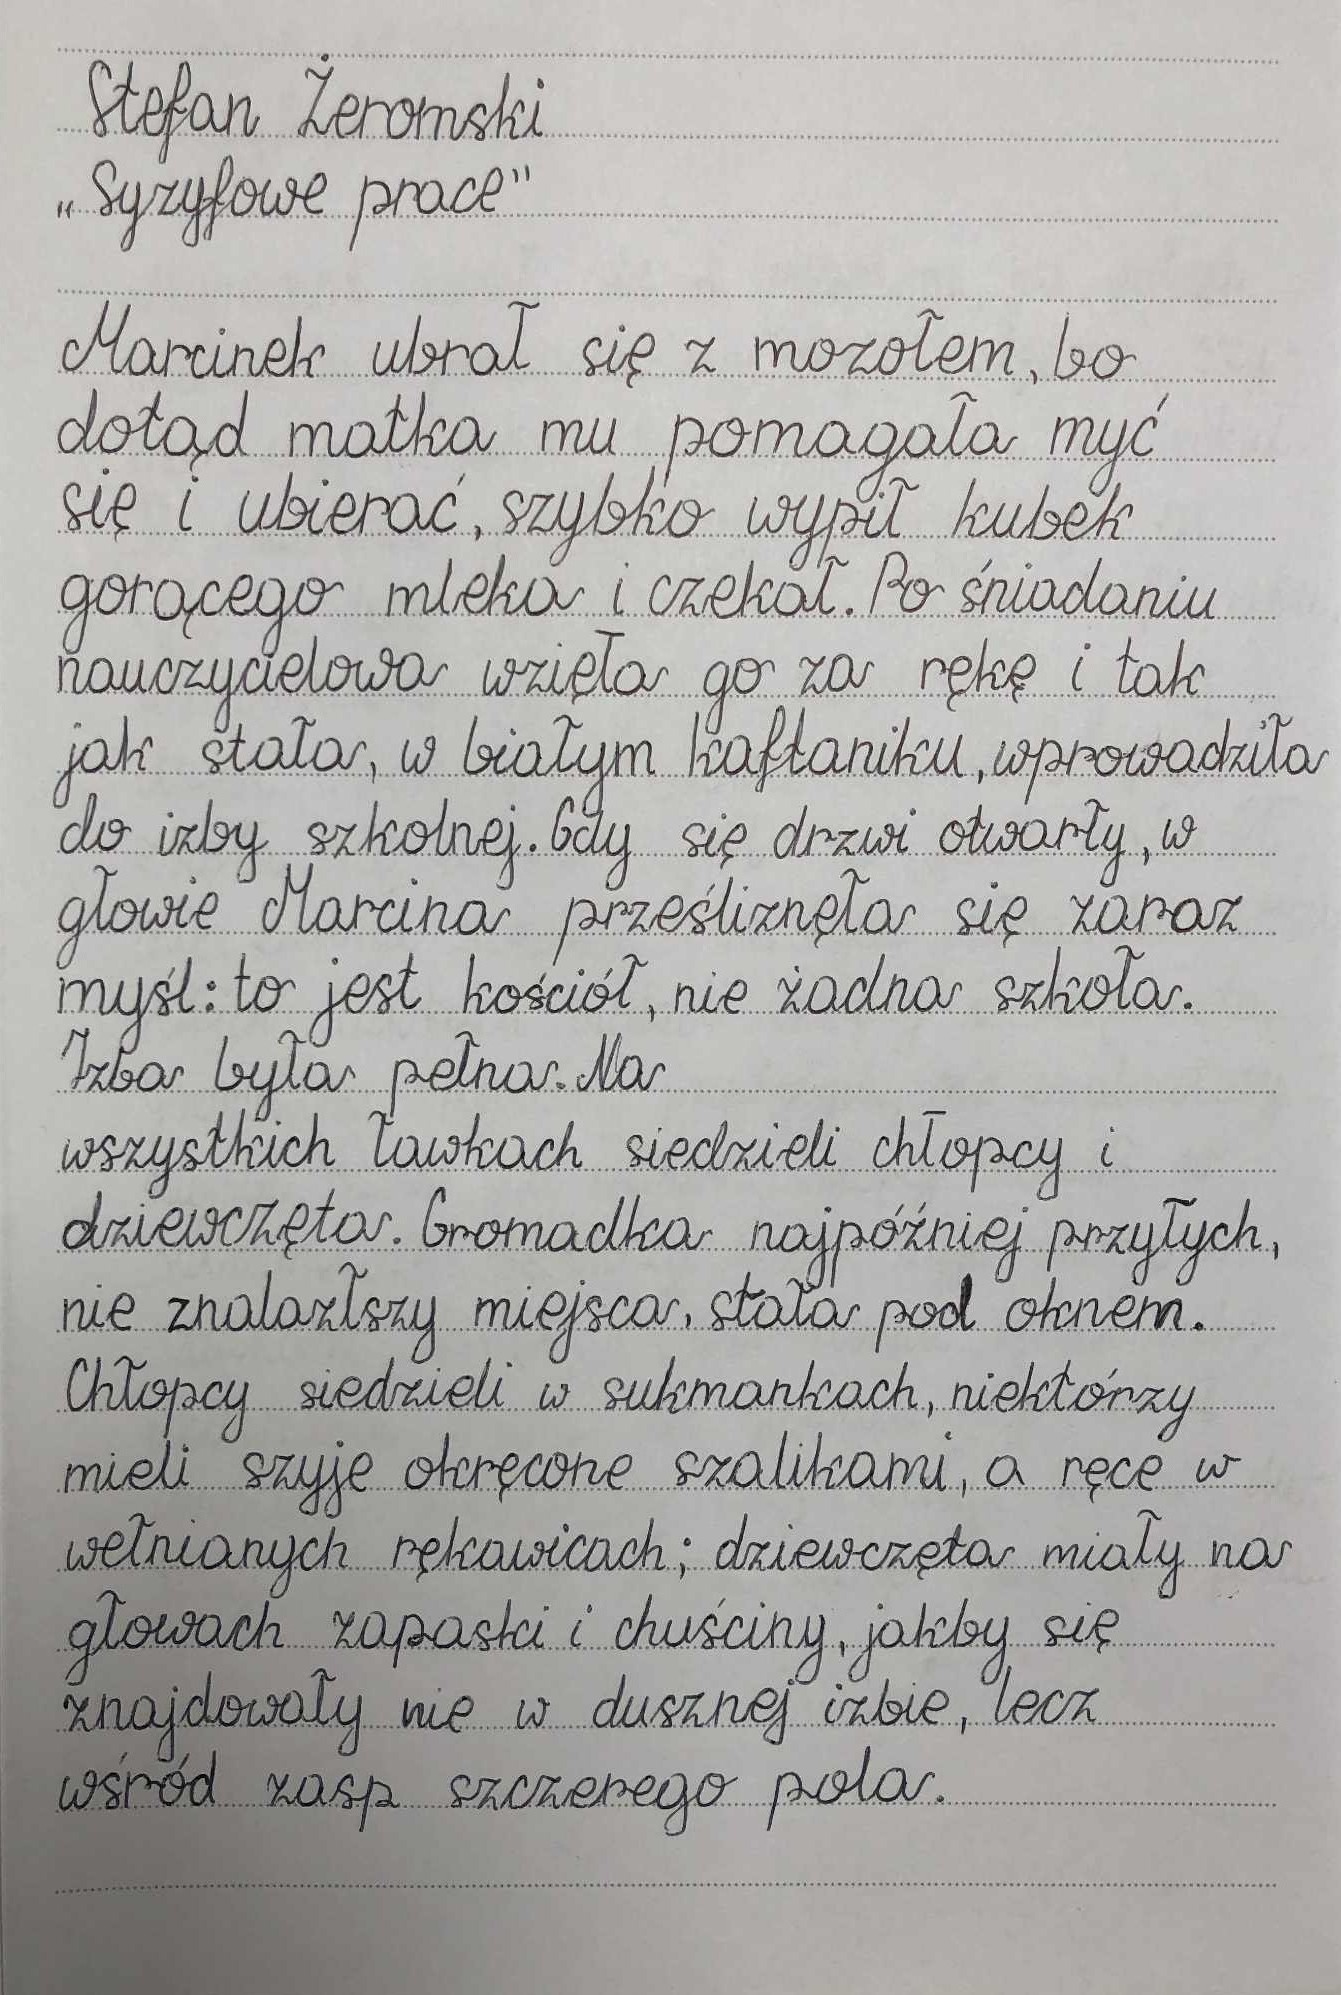 Stefan Żeromski
„Syzyfowe prace"
Marcinek ubrał się z mozołem, bo
dotąd matka mu pomagała myć
się i ubierać, szybko wypił kubek
gorącego mleka i czekał. Po śniadaniu
nauczycielowa wzięła go za rękę i tak
jak stała, w białym kaftaniku, wprowadziła
do izby szkolnej. Gdy się drzwi otwarły, w
głowie Marcina prześliznęła się zaraz
myśl: to jest kościół, nie żadna szkoła.
Izba była pełna. Na
wszystkich ławkach siedzieli chłopcy i
dziewczęta. Gromadka najpóźniej przyłych,
nie znalazłszy miejsca, stała pod oknem.
Chłopcy siedzieli w sukmankach, niektórzy
mieli szyje okręcone szalikami, a ręce w
wełnianych rękawicach; dziewczęta miały na
głowach zapaski i chuściny, jakby się
znajdowały nie w dusznej izbie, lecz
wśród zasp szczerego pola.